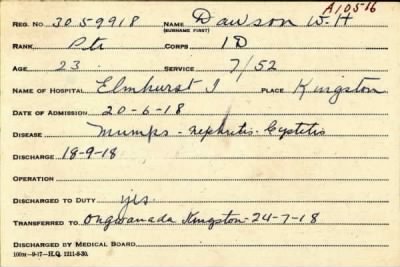 A10516
REG. NO. 3059918 NAME Dawson W. H
(SURNAME FIRST)
RANK Pte CORPS 1D
AGE 23 SERVICE 7/52
NAME OF HOSPITAL Elmhurst I PLACE Kingston
DATE OF ADMISSION 20-6-18
DISEASE Mumps - nephritis - Cystitis
DISCHARGE 18-9-18
OPERATION
DISCHARGED TO DUTY yes.
TRANSFERRED TO Ongwanada Kingston - 24-7-18
DISCHARGED BY MEDICAL BOARD
100M-9-17-H.Q. 1211-8-30.